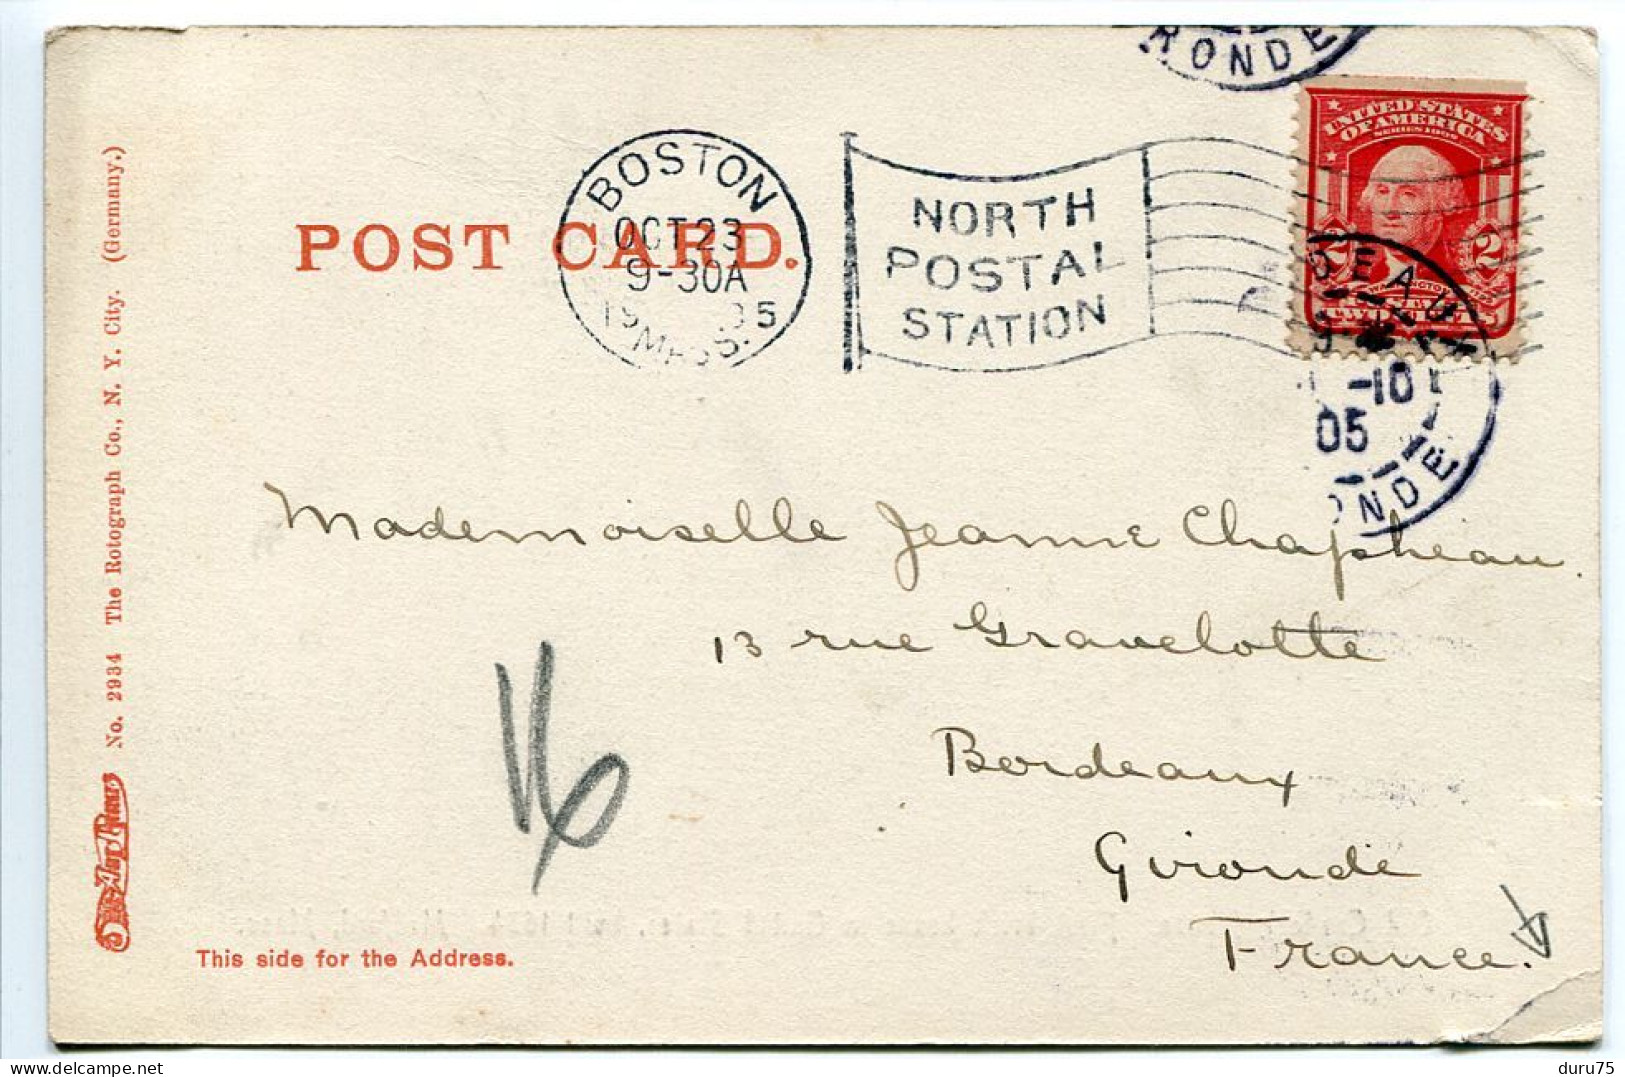 RONDE
UNITED STATES
OF AMERICA
SERIES 1902
BOSTON
OCT 23
9-30A
19 05
MASS.
NORTH
POSTAL
STATION
POST CARD.
2 2
WASHINGTON
TWO CENTS
DEAUX
-10
05
ONDE
Mademoiselle Jeanne Chapheau.
13 rue Gravelotte
Bordeaux
Gironde
France.
16
This side for the Address.
No. 2934 The Rotograph Co., N. Y. City. (Germany.)
duru75